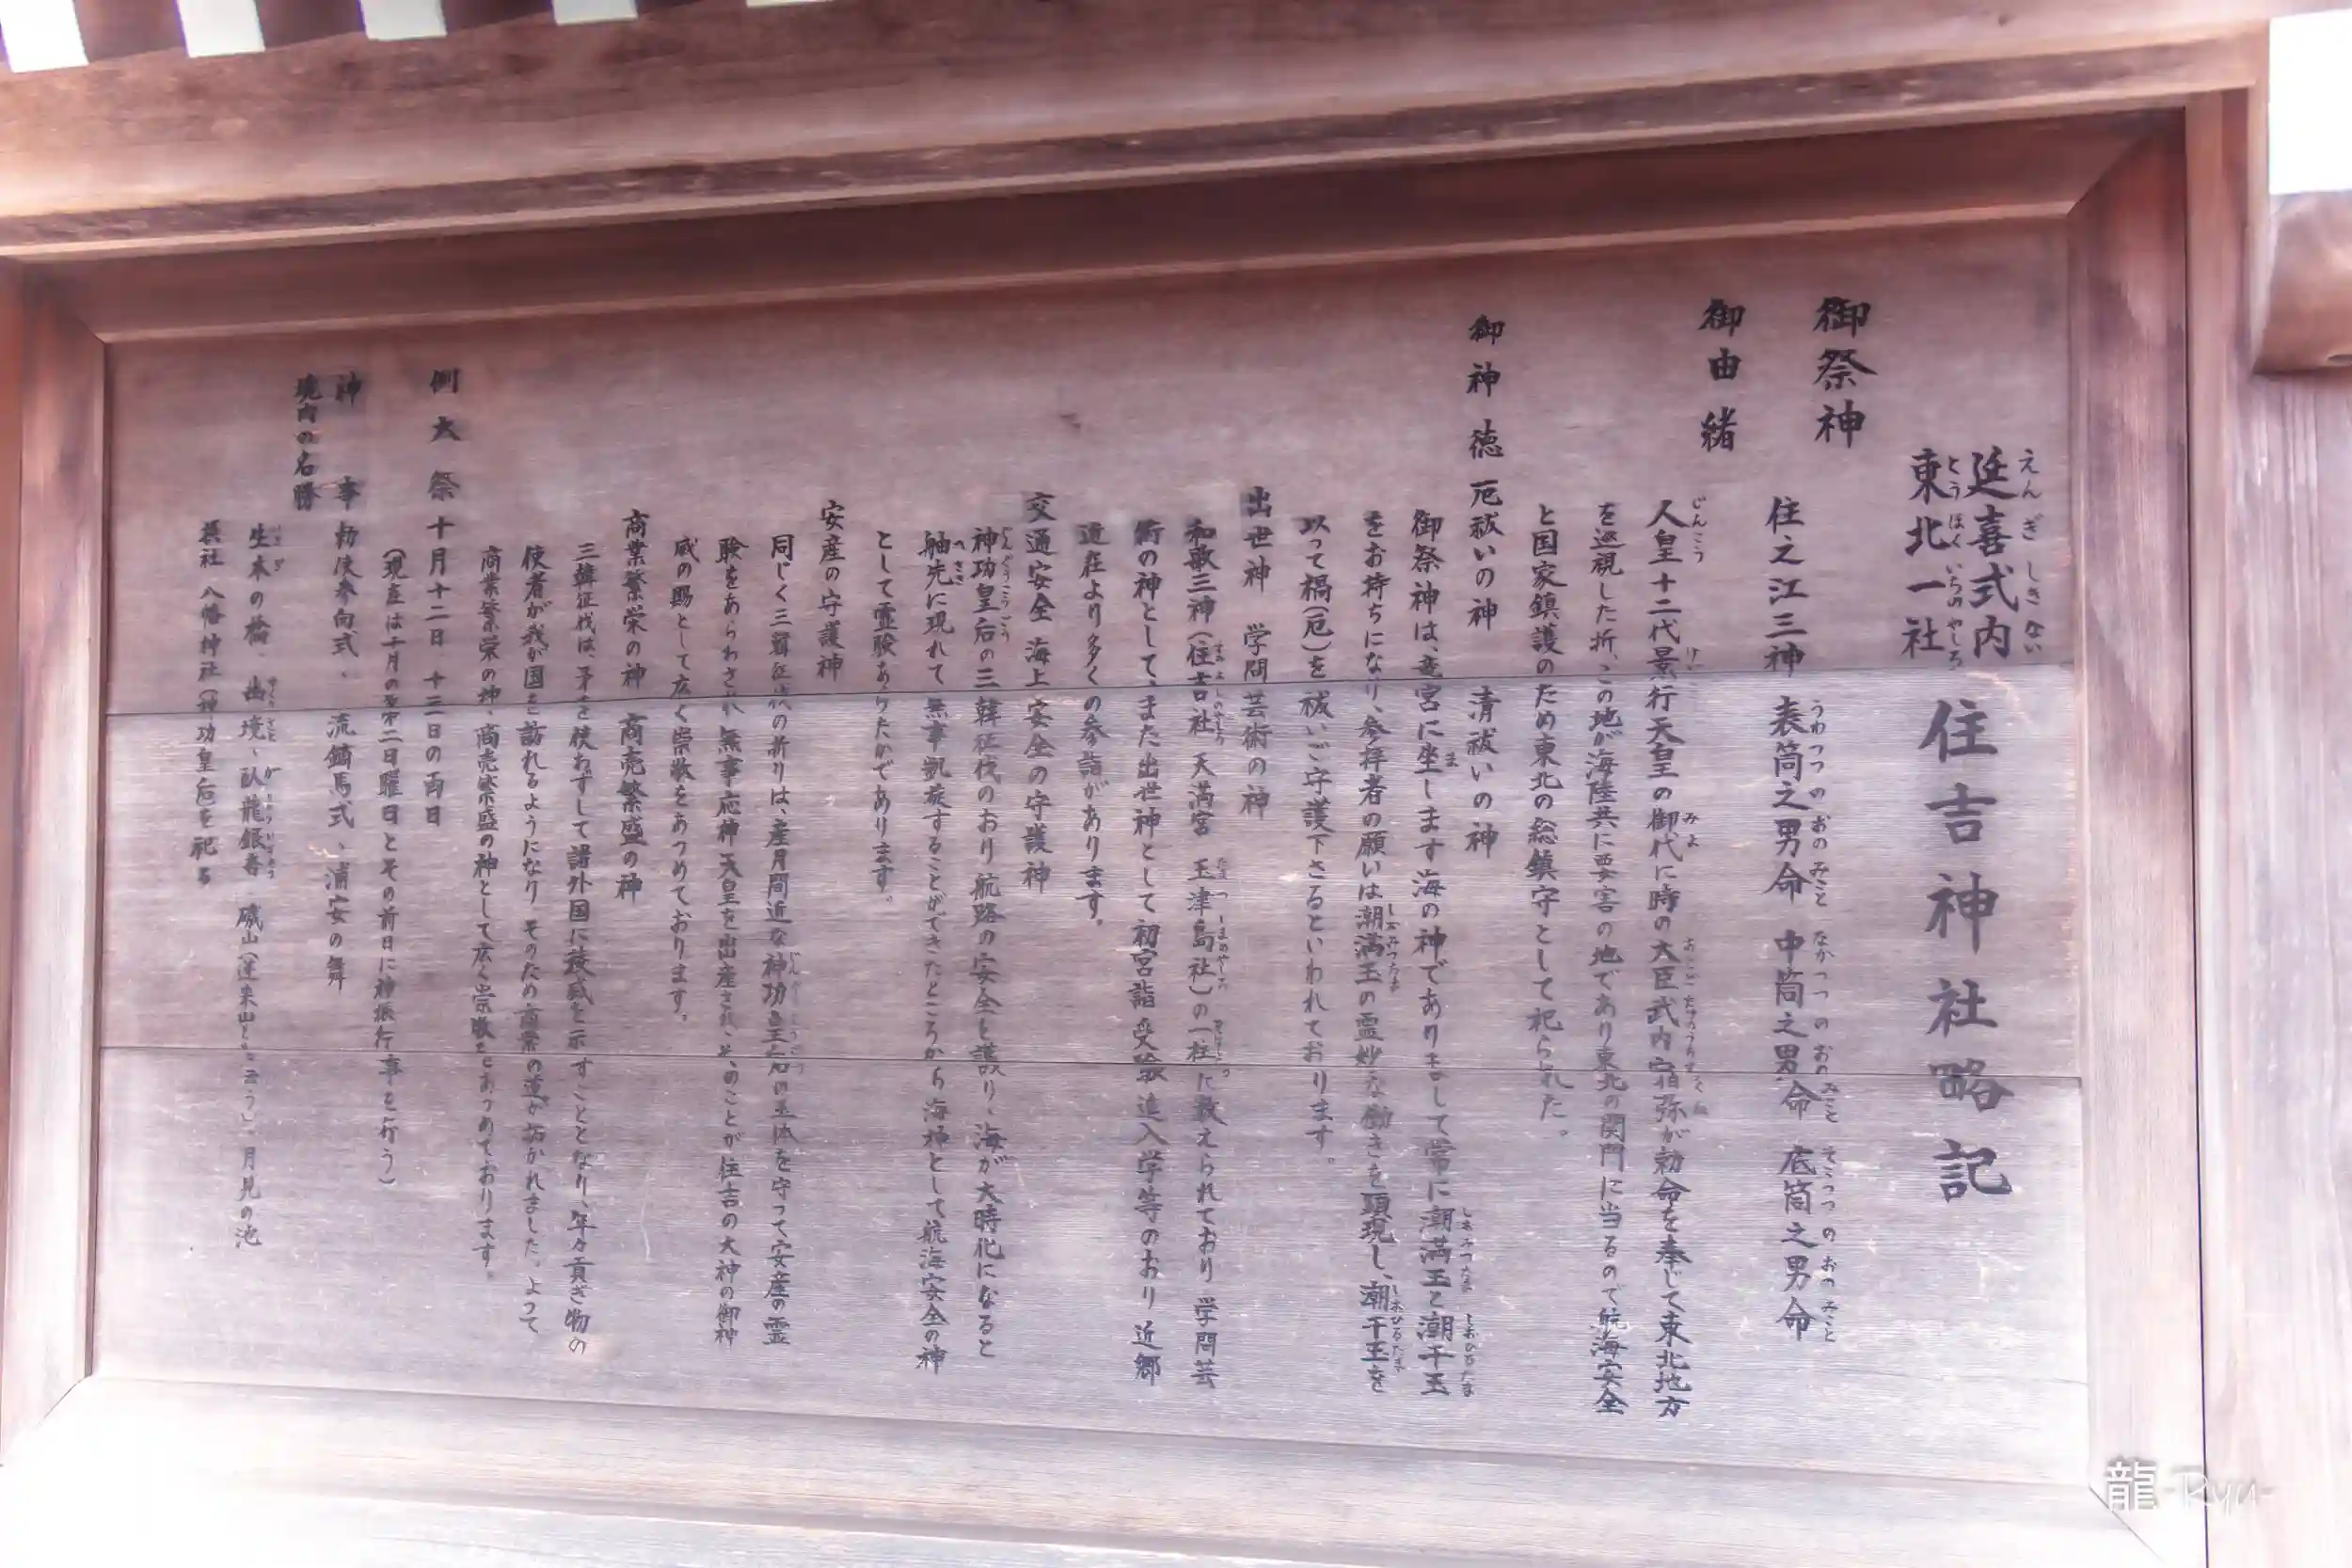 延喜式内
東北一社
住吉神社略記
えんぎしきない
とうほくいちのやしろ
御祭神
住之江三神 表筒之男命 中筒之男命 底筒之男命
うわつつのおのみこと なかつつのおのみこと そこつつのおのみこと
御由緒
人皇十二代景行天皇の御代に時の大臣武内宿弥が勅命を奉じて東北地方
じんこう みよ
を巡視した折、この地が海陸共に要害の地であり東北の関門に当るので航海安全
と国家鎮護のため東北の総鎮守として祀られた。
御神徳 厄祓いの神 清祓いの神
御祭神は、竜宮に坐します海の神でありまして常に潮満玉と潮干玉
ま しおみつたま しおひるたま
をお持ちになり、参拝者の願いは潮満玉の霊妙な働きを顕現し、潮干玉を
しおみつたま しおひるたま
以って禍(厄)を祓いご守護下さるといわれております。
出世神 学問芸術の神
和歌三神(住吉社 天満宮 玉津島社)の一柱に数えられており 学問芸
術の神として、また出世神として初宮詣 受験 進入学等のおり 近郷
近在より多くの参詣があります。
交通安全 海上安全の守護神
神功皇后の三韓征伐のおり航路の安全を護り、海が大時化になると
じんぐうこうごう
舳先に現れて 無事凱旋することができたところから海神として航海安全の神
へさき
として霊験あらたかであります。
安産の守護神
同じく三韓征伐の折りは、産月間近な神功皇后の玉体を守って安産の霊
験をあらわされ 無事応神天皇を出産され、そのことが住吉の大神の御神
威の賜として広く崇敬をあつめております。
商業繁栄の神 商売繁盛の神
三韓征伐は、矛を使わずして諸外国に稜威を示すこととなり、年々貢ぎ物の
使者が我が国を訪れるようになり そのため商業の道が拓かれました。よって
商業繁栄の神、商売繁盛の神として広く崇敬をあつめております。
例大祭 十月十二日 十三日の両日
(現在は十月の第二日曜日とその前日に神振行事を行う)
神事 勅使参向式、流鏑馬式、浦安の舞
境内の名勝
生木の橋、幽境、臥龍銀杏 磯山(蓬来山とも云う)、月見の池
摂社 八幡神社(神功皇后を祀る
龍 -Ryu-